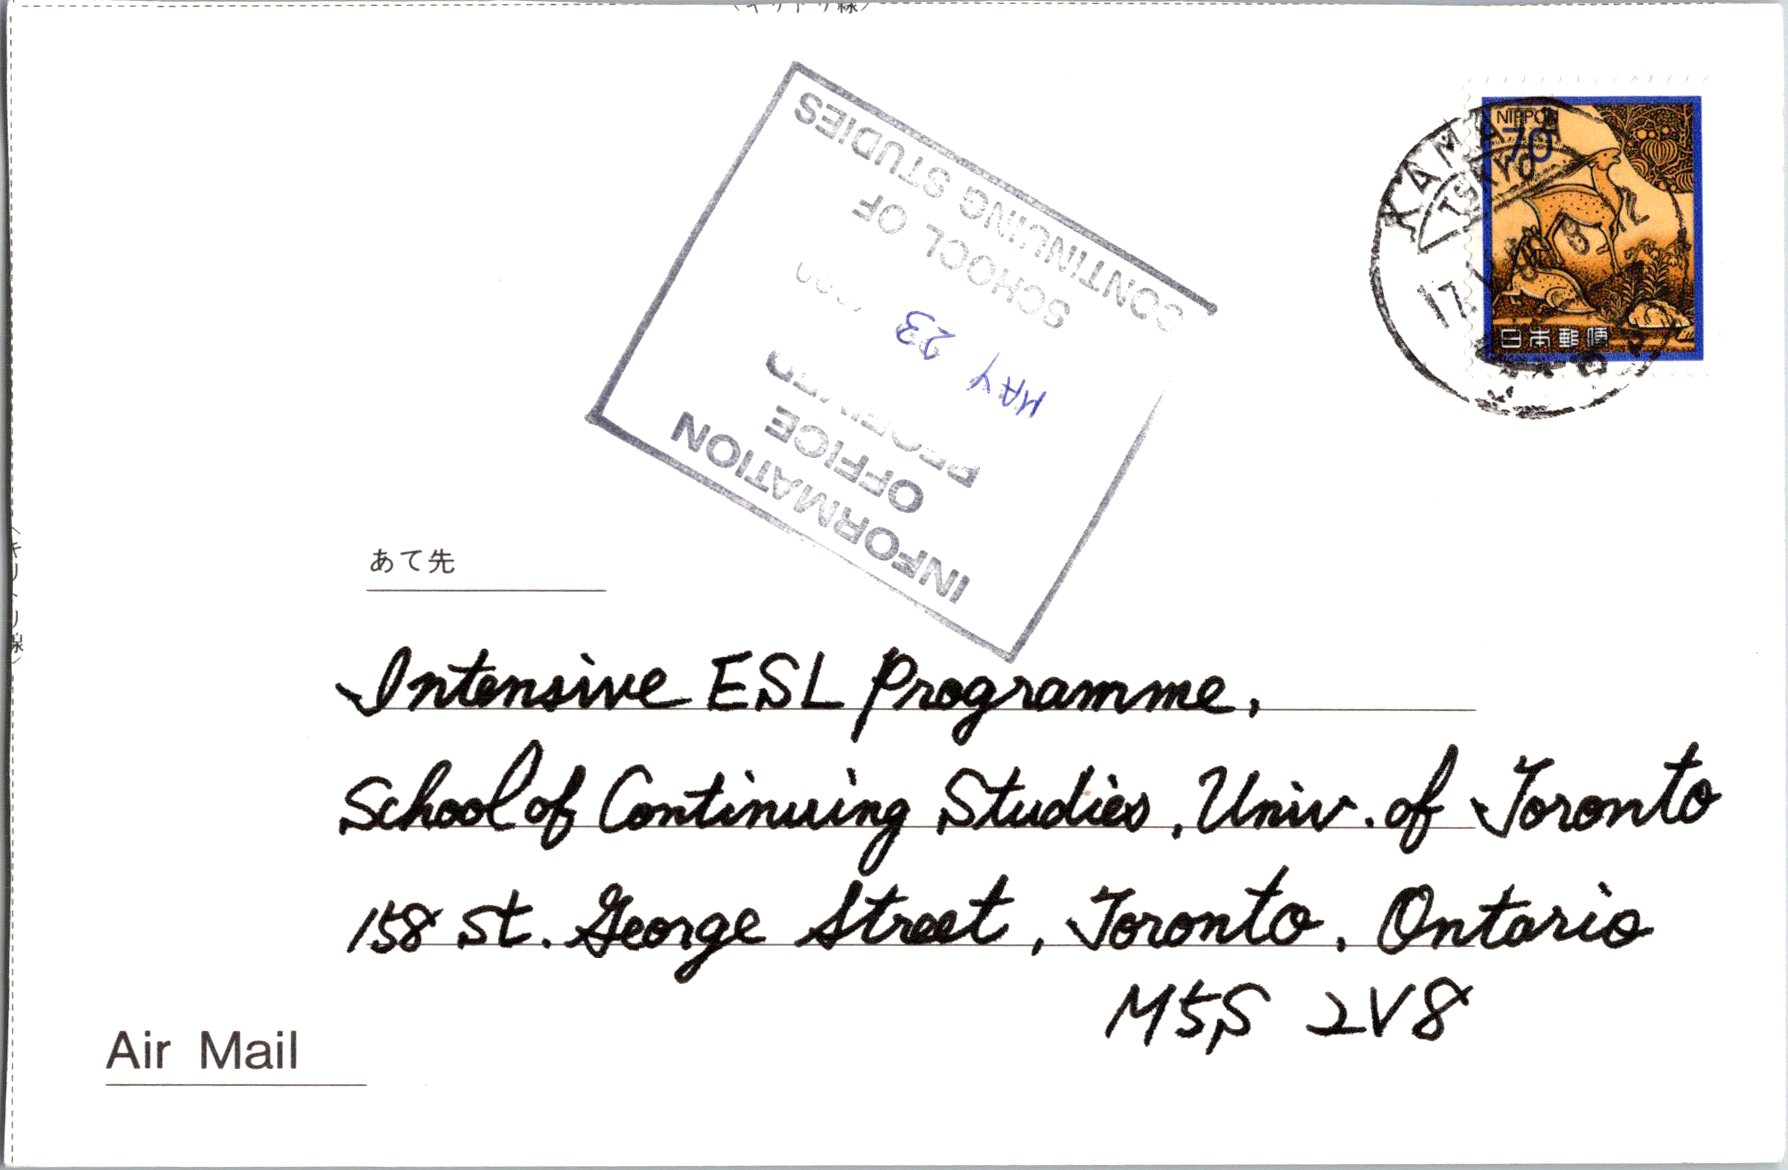 〈キリトリ線〉
NIPPON
70
日本郵便
KAMATA
TOKYO
INFORMATION
OFFICE
RECEIVED
MAY 23
SCHOOL OF
CONTINUING STUDIES
〈キリトリ線〉
あて先
Intensive ESL Programme,
School of Continuing Studies, Univ. of Toronto
158 St. George Street, Toronto, Ontario
M5S 2V8
Air Mail